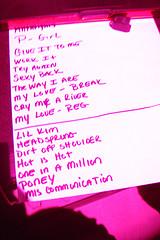 P-GIRL
GIVE IT TO ME
WORK IT
TRY AGAIN
SEXY BACK
THE WAY I ARE
MY LOVE - BREAK
CRY ME A RIVER
MY LOVE - REG
LIL KIM
HEADSPRUNG
DIRT OFF SHOULDER
HOT IS HOT
ONE IN A MILLION
PONEY
MIS COMMUNICATION